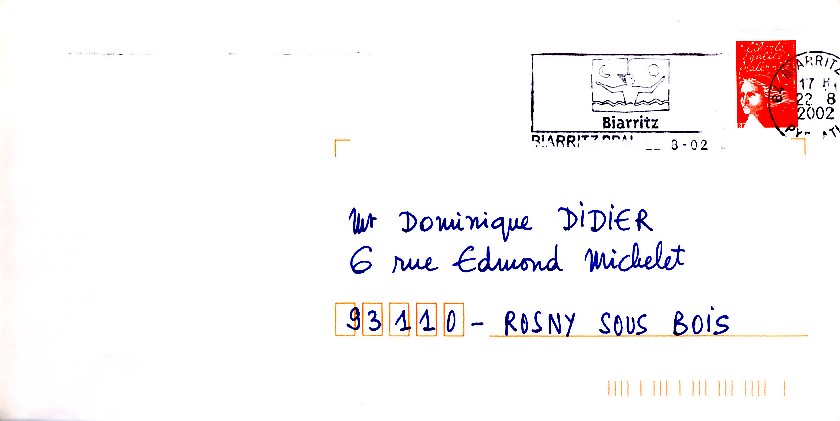 Liberté
BIARRITZ
17 H
22 8
2002
Biarritz
BIARRITZ PPAL 8-02
RF
Mr Dominique DIDIER
6 rue Edmond Michelet
93110 - ROSNY SOUS BOIS